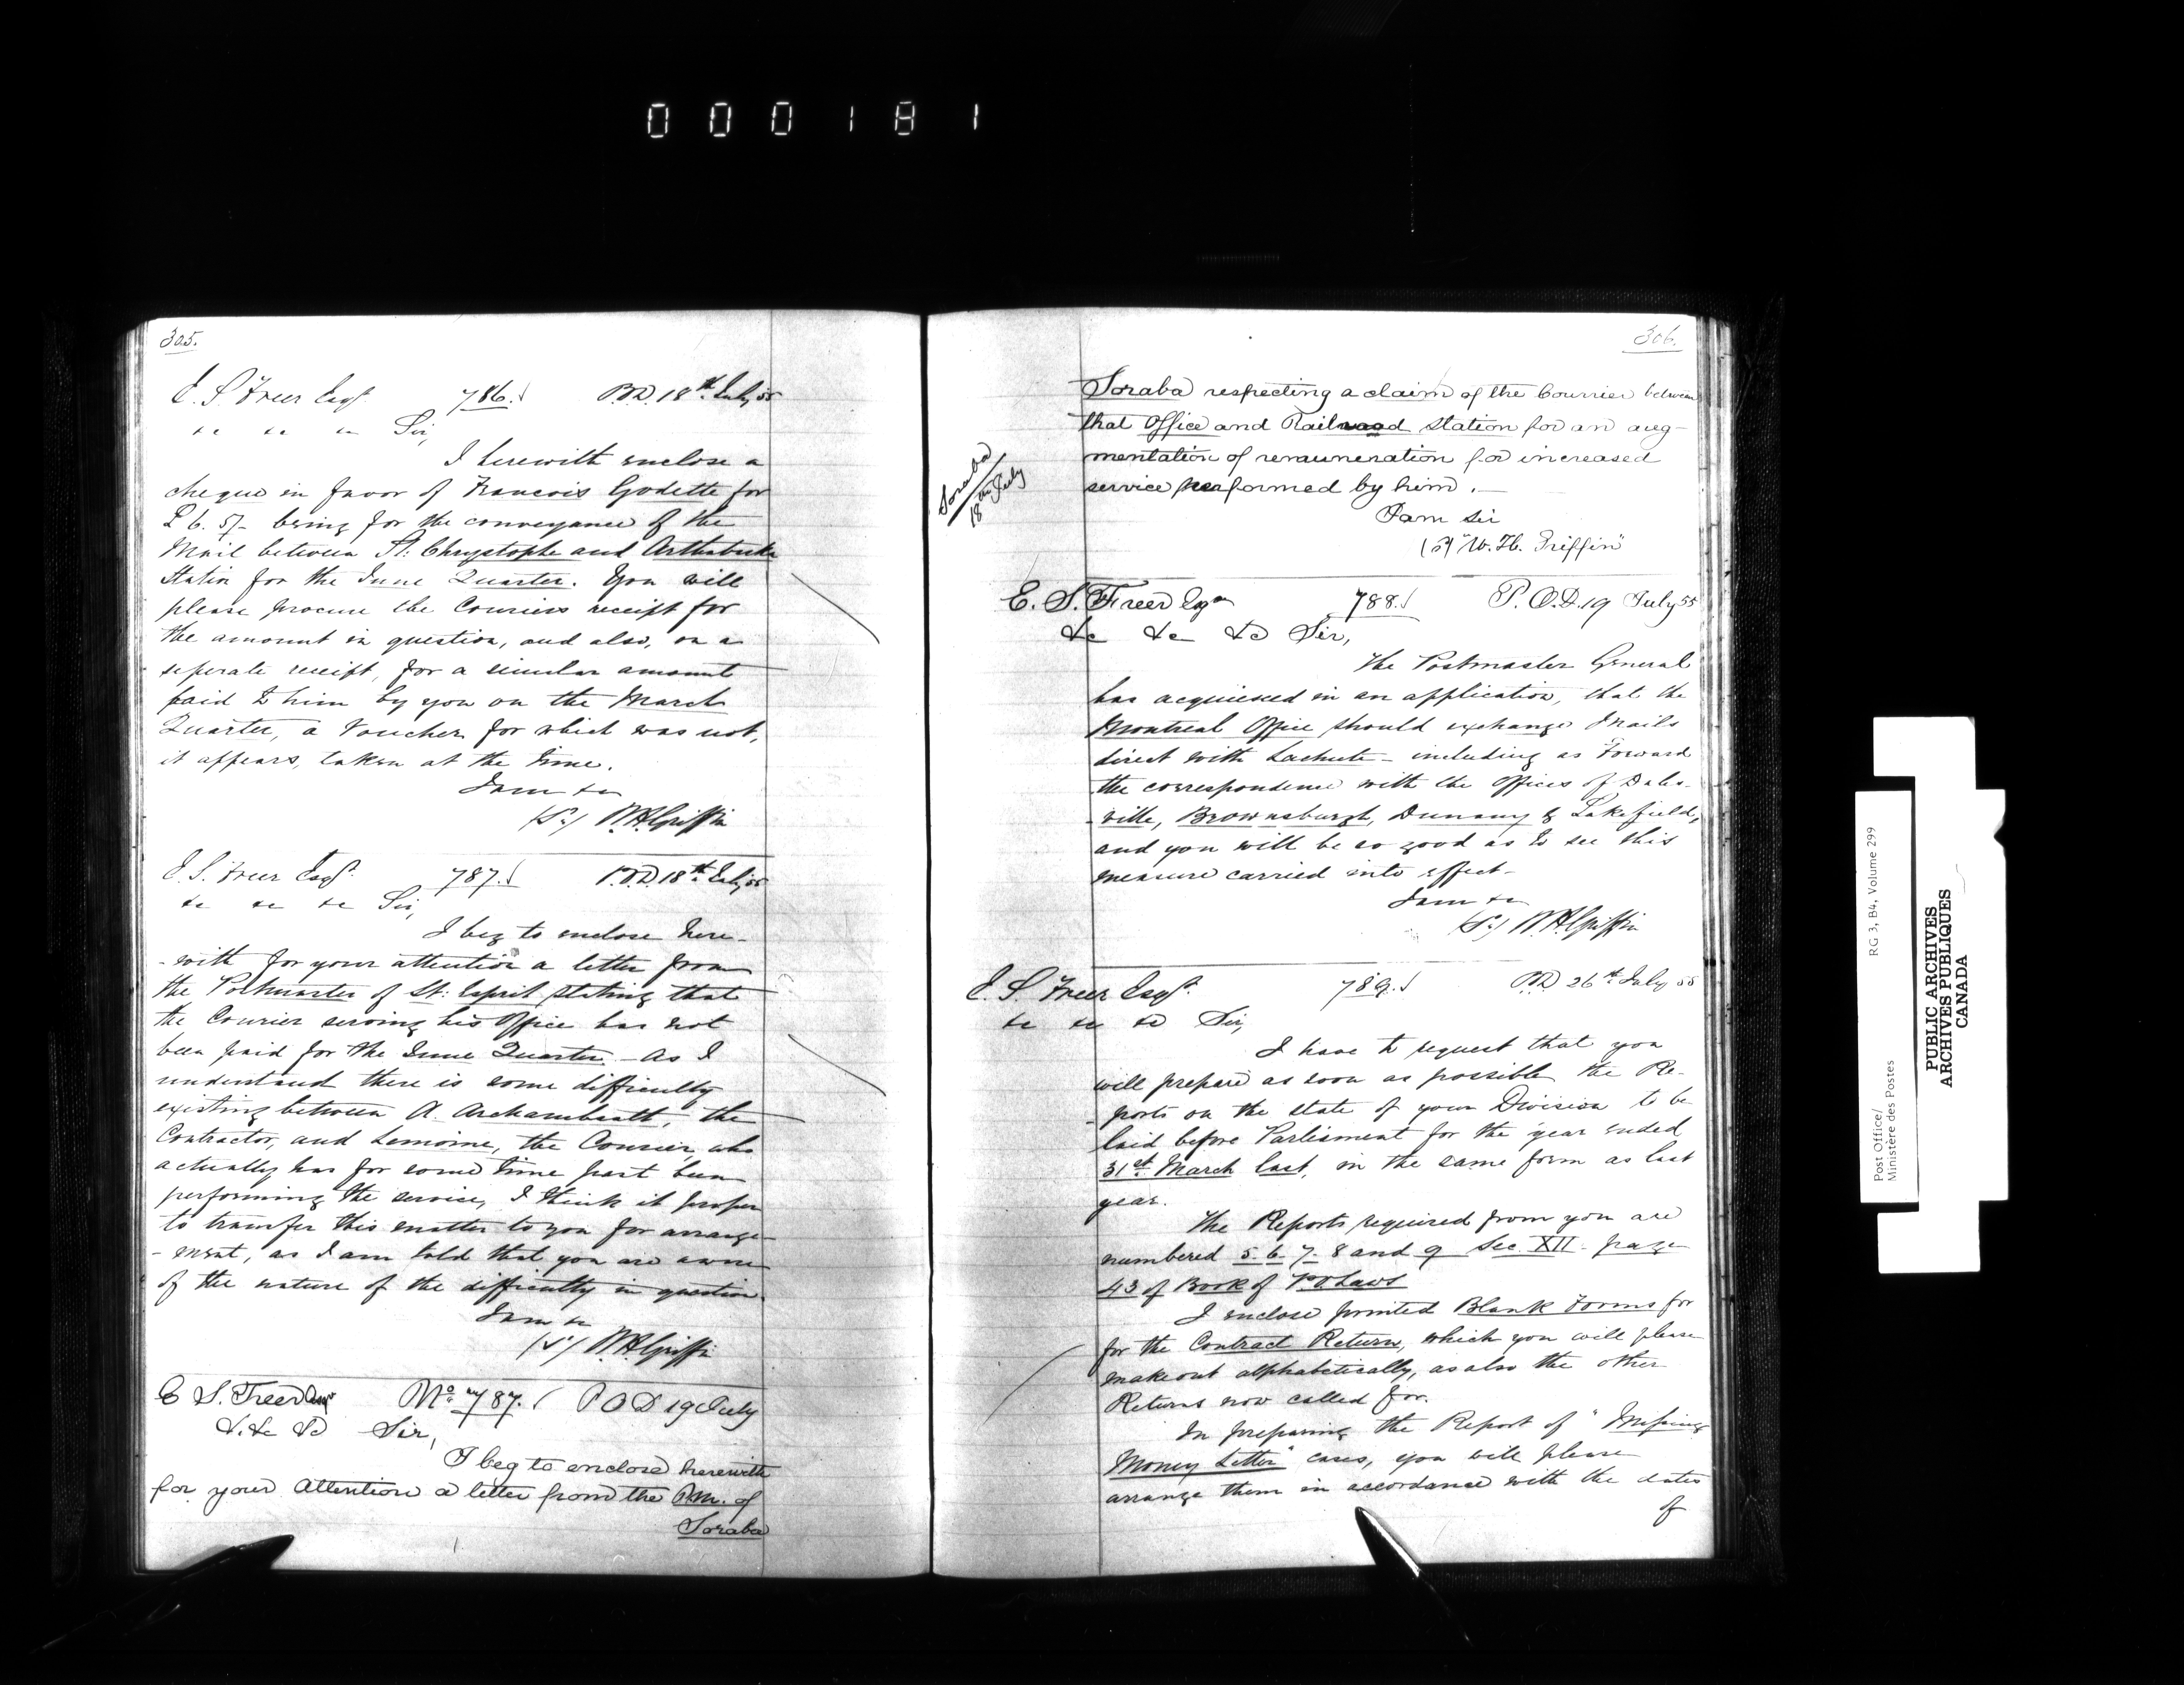 000181
305.
E. S. Freer Esqr. 786. P.O.D. 18th July 55
&c &c &c Sir,
I herewith enclose a
cheque in favor of Francois Godette for
£6. 5/- being for the conveyance of the
Mail between St. Chrystophe and Arthabuska
Station for the June Quarter. You will
please procure the Couriers receipt for
the amount in question, and also, on a
seperate receipt, for a similar amount
paid to him by you on the March
Quarter, a Voucher for which was not,
it appears, taken at the time.
I am &c
(S.) W.H. Griffin
E. S. Freer Esqr. 787. P.O.D. 18th July 55
&c &c &c Sir,
I beg to enclose here-
-with for your attention a letter from
the Postmaster of St. Esprit stating that
the Courier serving his Office has not
been paid for the June Quarter - As I
understand there is some difficulty
existing between A. Archambault, the
Contractor, and Lemoine, the Courier, who
actually has for some time past been
performing the service, I think it proper
to transfer this matter to you for arrange-
-ment, as I am told that you are aware
of the nature of the difficulty in question.
I am &c
(S.) W.H. Griffin
E S. Freer Esqr No. 787. P O D 19 July
&. &c &c Sir,
I beg to enclose herewith
for your Attention a letter from the P.M. of
Soraba
306.
Soraba respecting a claim of the Courrier between
that Office and Railroad Station for an aug-
mentation of remuneration for increased
service performed by him.
Soraba
18th July
I am Sir
(S) "W. H. Griffin"
E. S. Freer Esqr 788. P.O.D. 19 July 55
&c &c &c Sir,
The Postmaster General
has acquiesced in an application, that the
Montreal Office should exchange Mails
direct with Lachute - including as Forward
the correspondence with the Offices of Dales-
-ville, Brownsburgh, Dunany & Lakefield,
and you will be so good as to see this
measure carried into effect -
I am &c
(S.) W.H. Griffin
E. S. Freer Esqr. 789. P.O.D 26th July 55
&c &c &c Sir,
I have to request that you
will prepare as soon as possible the Re-
-ports on the state of your Division to be
laid before Parliament for the year ended
31st March last, in the same form as last
year.
The Reports required from you are
numbered 5. 6. 7. 8 and 9 Sec. XII. page
43 of Book of P.O Laws
I enclose printed Blank Forms for
for the Contract Return, which you will please
make out alphabetically, as also the other
Returns now called for.
In preparing the Report of "Missing
Money Letter" cases, you will please
arrange them in accordance with the dates
of
Post Office/
Ministère des Postes
RG 3, B4, Volume 299
PUBLIC ARCHIVES
ARCHIVES PUBLIQUES
CANADA